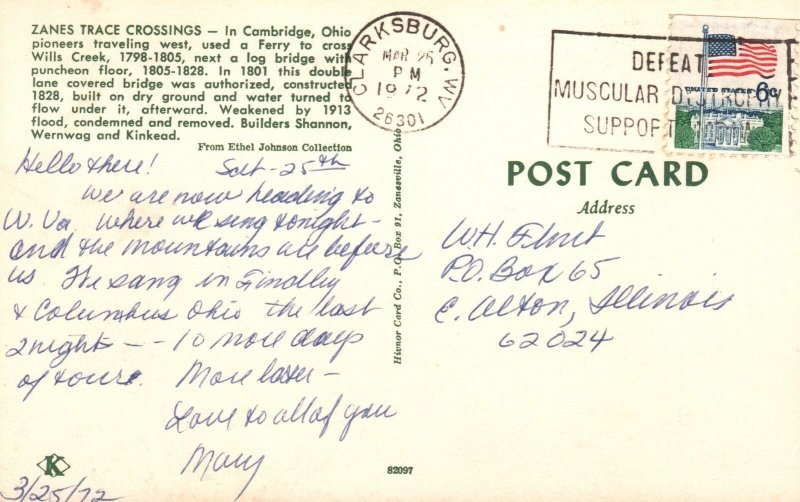 ZANES TRACE CROSSINGS — In Cambridge, Ohio
pioneers traveling west, used a Ferry to cross
Wills Creek, 1798-1805, next a log bridge with
puncheon floor, 1805-1828. In 1801 this double
lane covered bridge was authorized, constructed
1828, built on dry ground and water turned to
flow under it, afterward. Weakened by 1913
flood, condemned and removed. Builders Shannon,
Wernwag and Kinkead.
From Ethel Johnson Collection
Hello there! Sat - 25th
We are now heading to
W. Va where we sing tonight -
and the mountains are before
us. We sang in Findley
& Columbus Ohio the last
2 nights -- 10 more days
of tour. More later -
Love to all of you
Mary
3/25/72
K
Hivnor Card Co., P.O. Box 91, Zanesville, Ohio
82097
CLARKSBURG, WV
MAR 25
PM
1972
26301
DEFEAT
MUSCULAR DYSTROPHY
SUPPORT
UNITED STATES 6c
POST CARD
Address
W.H. Flint
P.O. Box 65
E. Alton, Illinois
62024